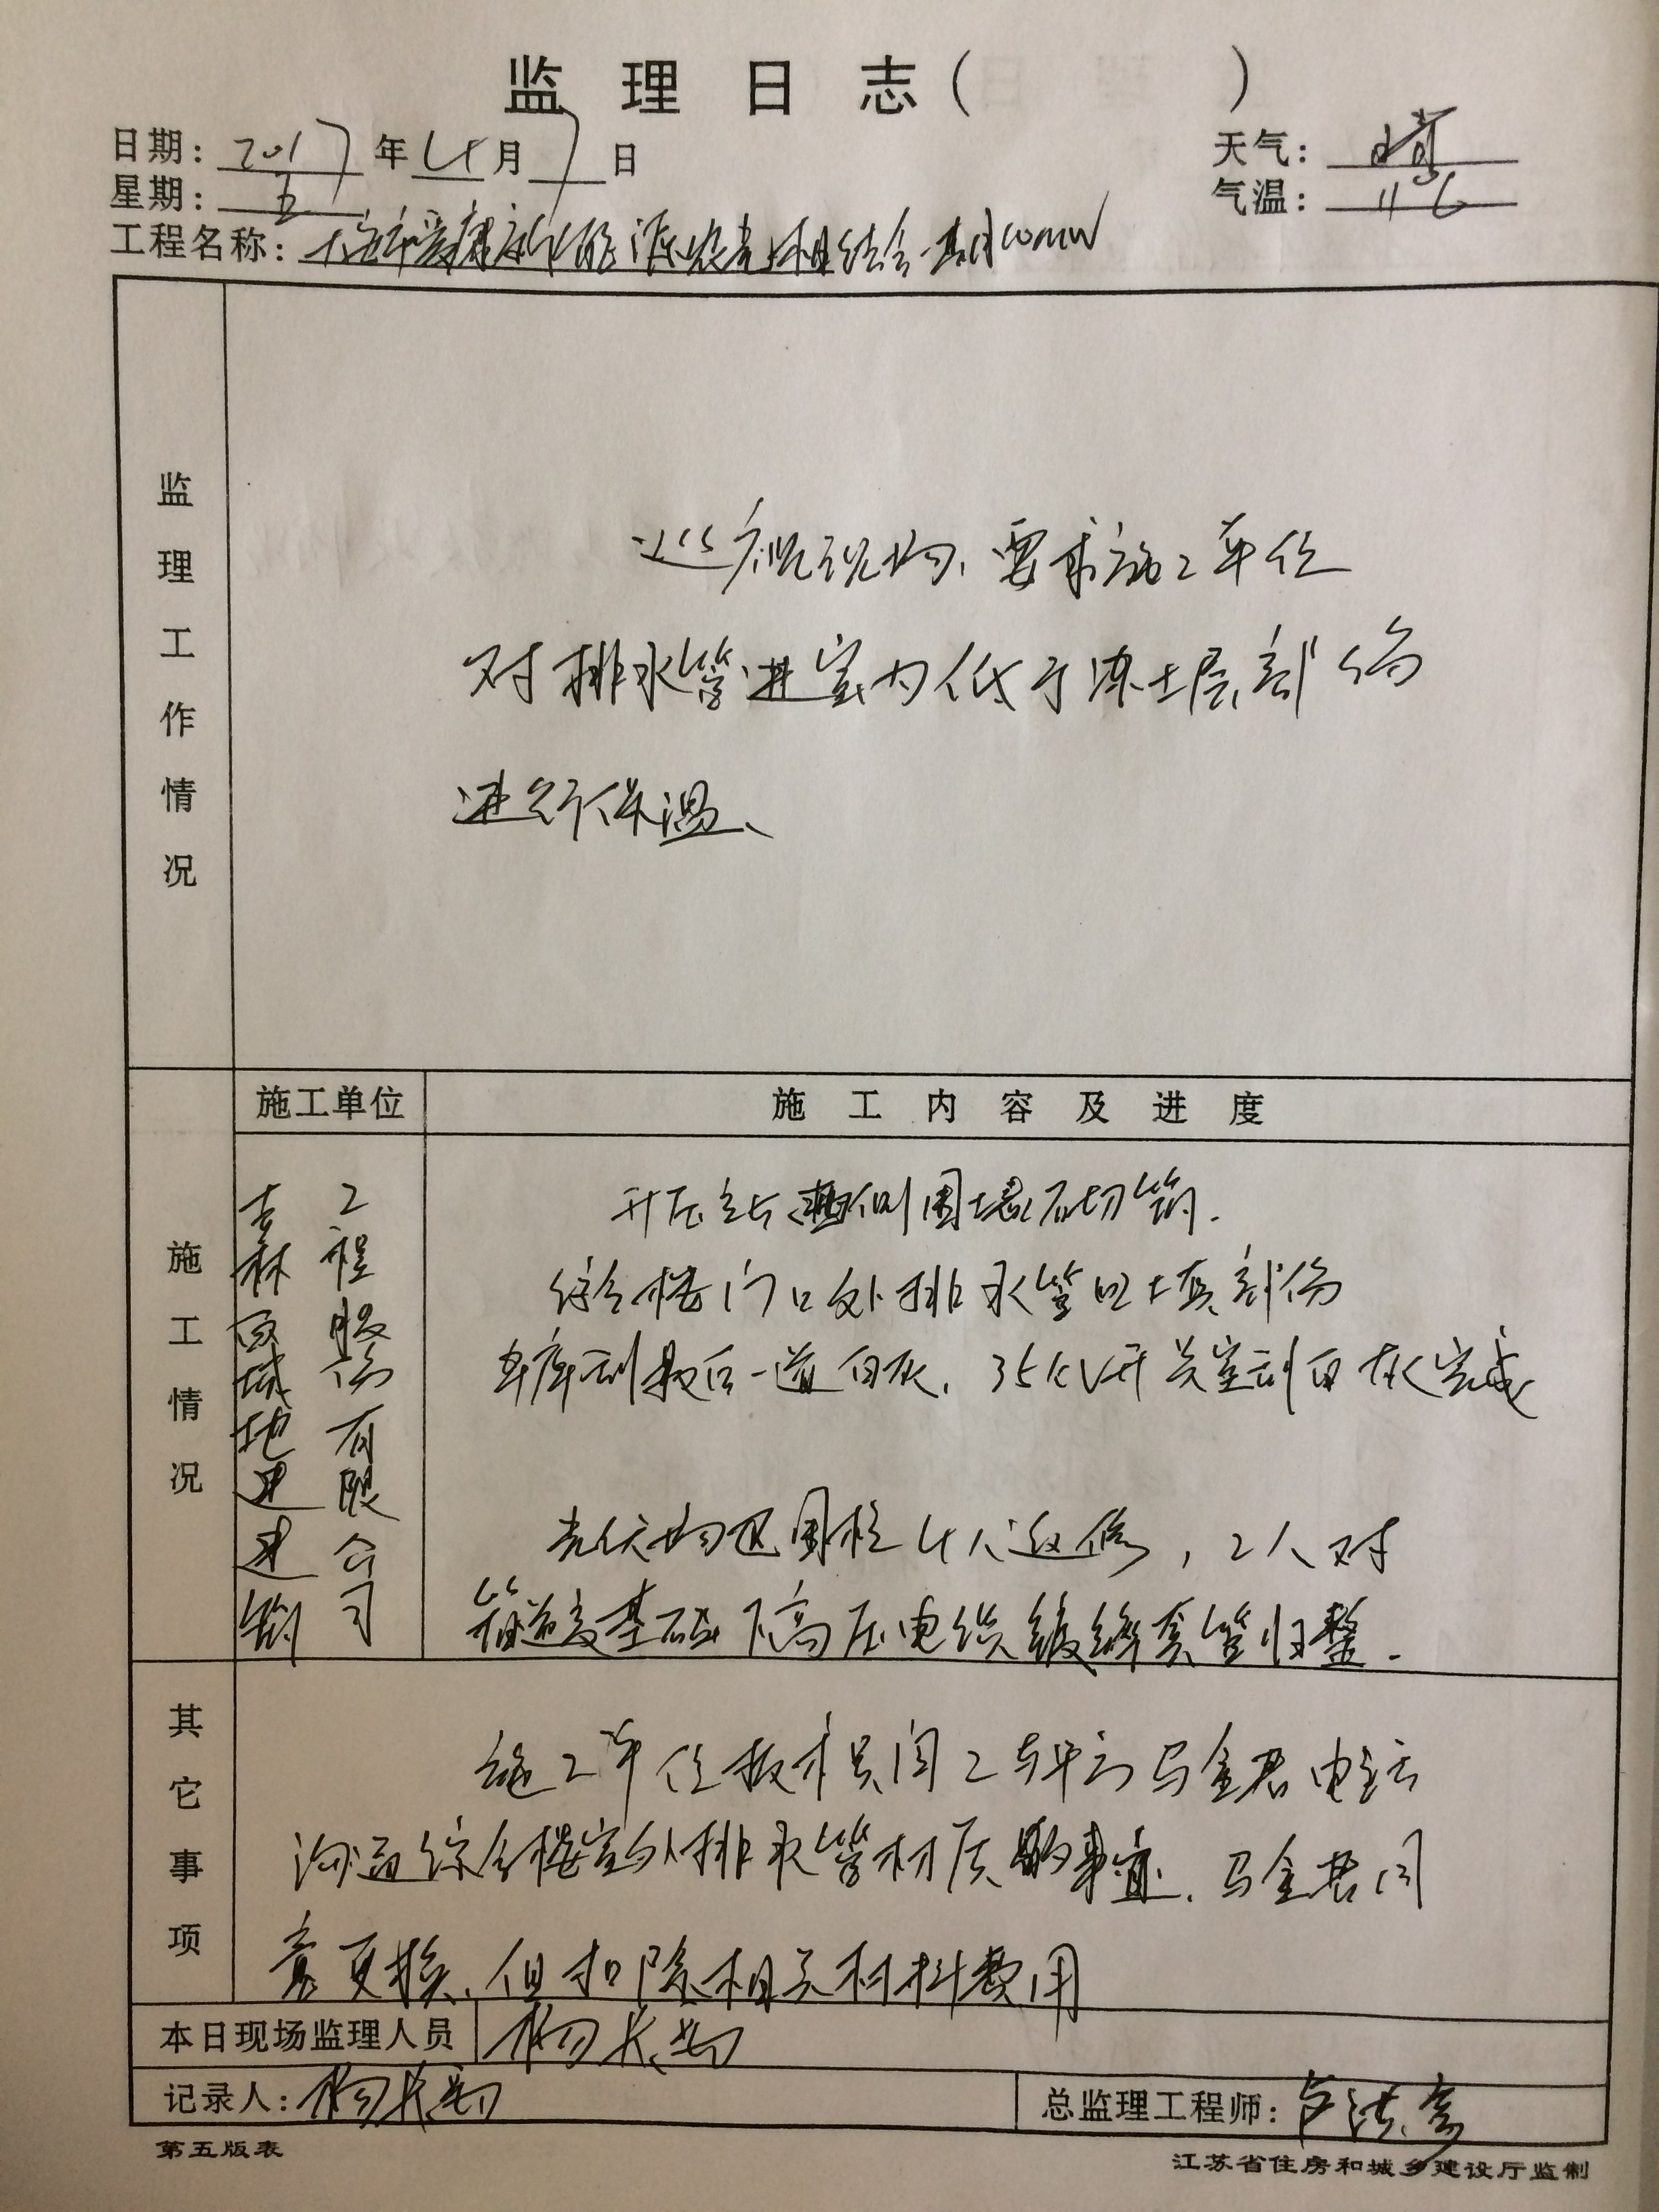 监理日志( )
日期: 2017 年 4 月 7 日
天气: 晴
星期: 五
气温: 11℃
工程名称: 大安市爱康新能源农光相结合一期10MW
监理工作情况
巡视现场、要求施工单位
对排水管进室内低于冻土层部份
进行保温、
施工情况
施工单位
施工内容及进度
吉林
地建
工程股份有限公司
升压站西侧围墙石切筑.
综合楼门口处排水管回填部份
车库刮最后一道白灰, 35KV开关室刮白灰完成
光伏场区围栏4人返修, 2人对
箱变基础下高压电缆 套管归整.
其它事项
施工单位技术员闫工与甲方马金君电话
沟通综合楼室外排水管材质的事宜, 马金君同
意更换, 但扣除相关材料费用
本日现场监理人员 杨长
记录人: 杨长
总监理工程师: 卢
第五版表
江苏省住房和城乡建设厅监制